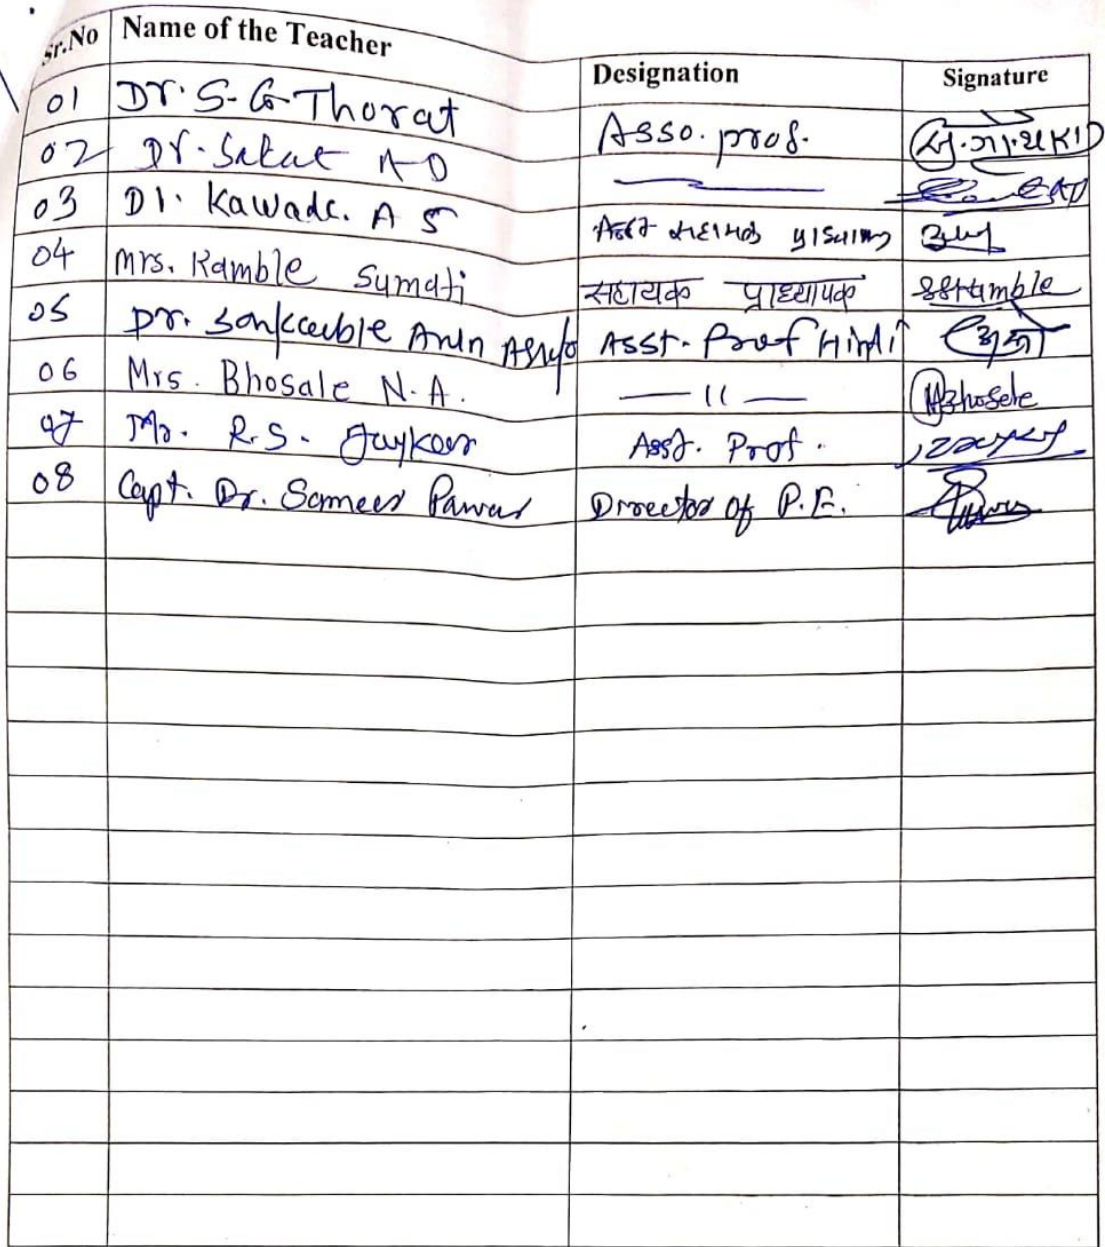 Sr.No Name of the Teacher Designation Signature
01 Dr. S. G. Thorat Asso. prof.
02 Dr. Sakat A D
03 Dr. Kawade. A S सहायक प्राध्यापक
04 Mrs. Kamble Sumati सहायक प्राध्यापक SSKamble
05 Dr. Sonkamble Asst. Prof Hindi
06 Mrs. Bhosale N.A. — 11 — Bhosale
07 Mr. R.S. Jaykar Asst. Prof.
08 Capt. Dr. Sameer Pawar Director of P.E.